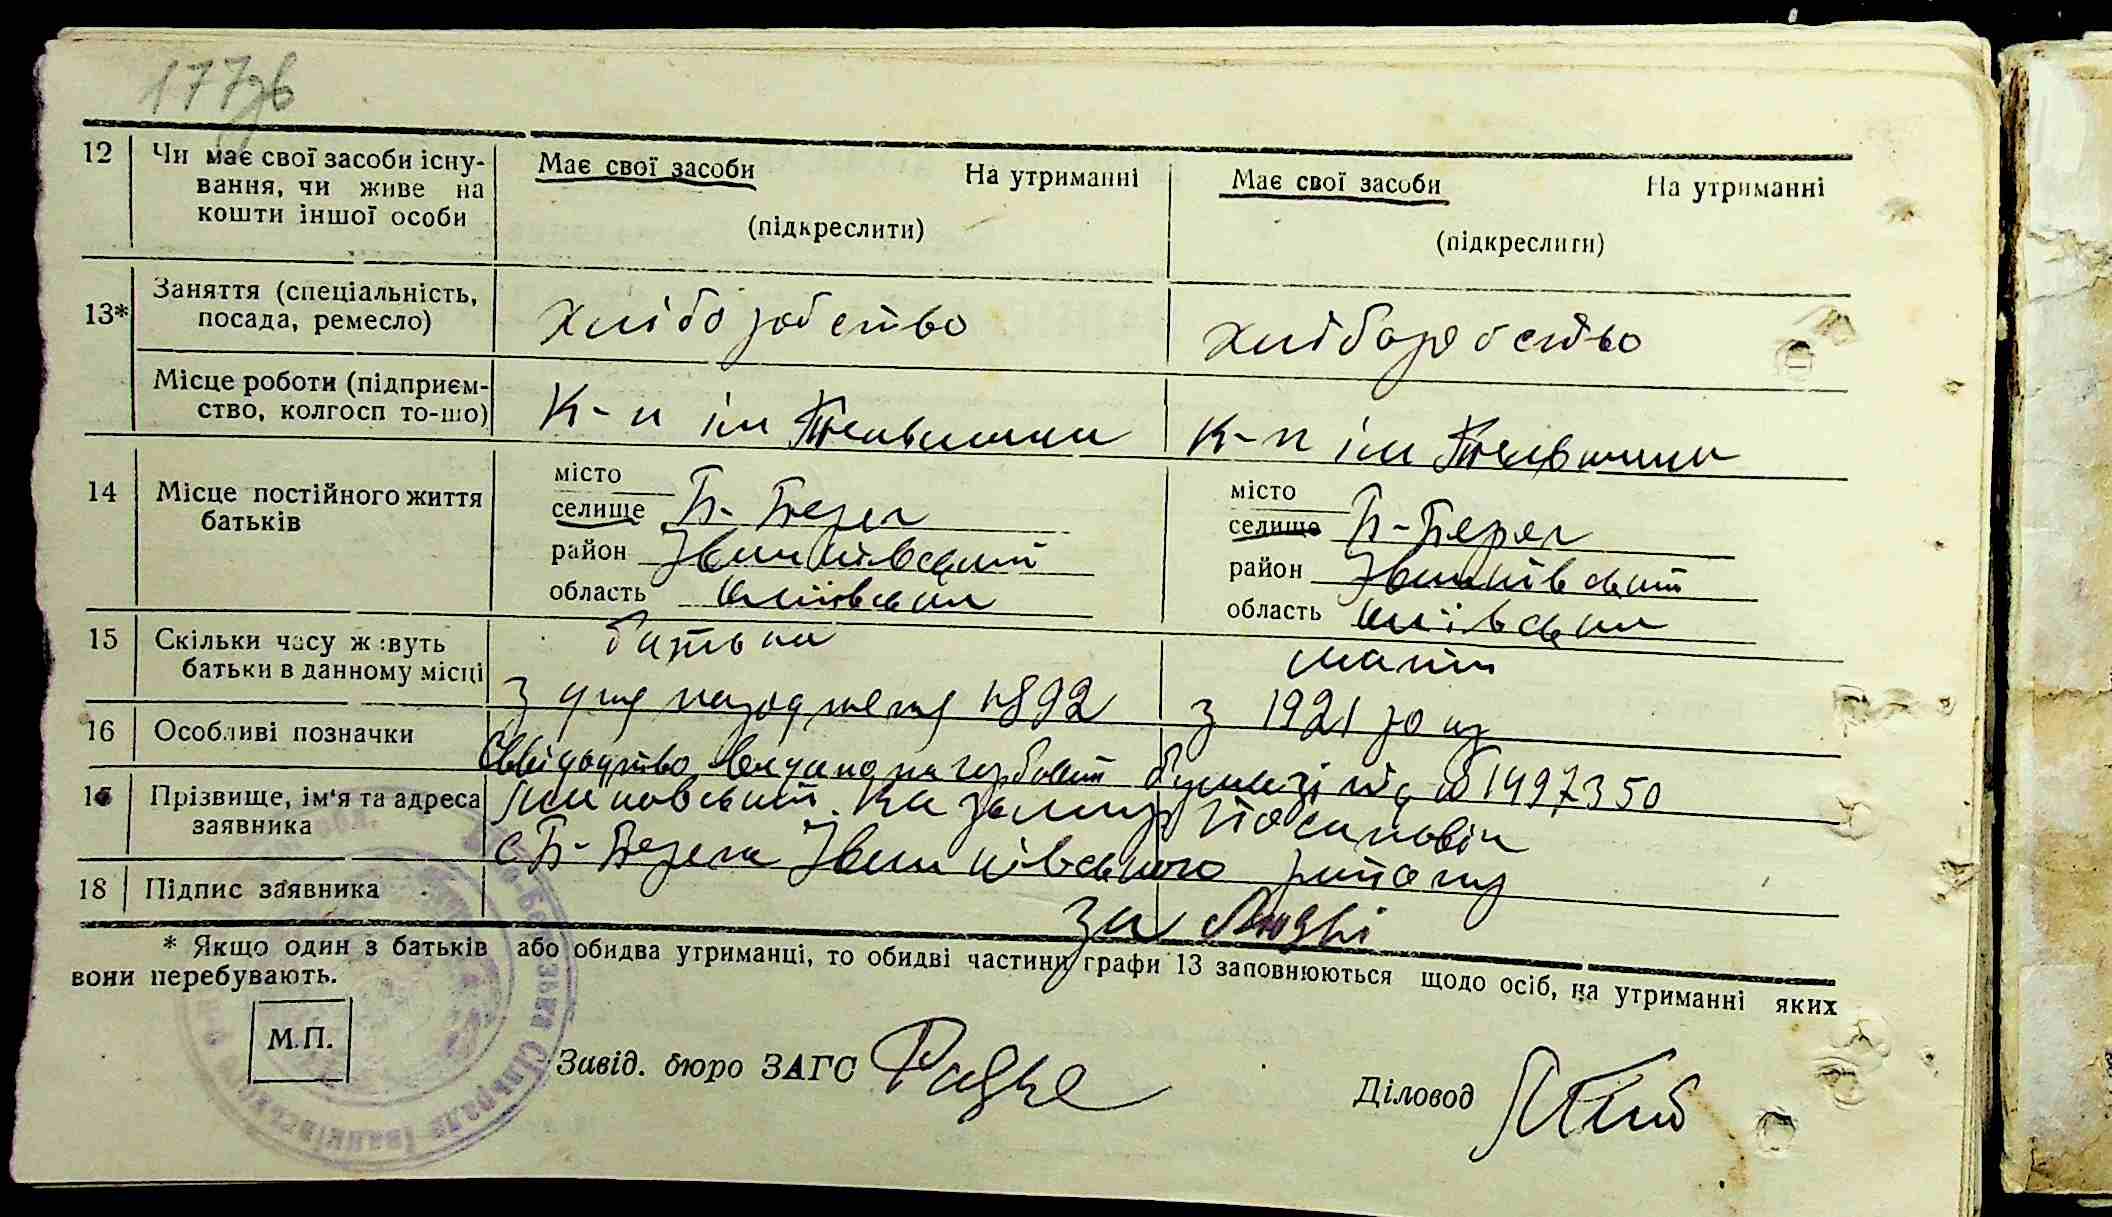 177зв
12 Чи має свої засоби існу- Має свої засоби На утриманні Має свої засоби На утриманні
вання, чи живе на
кошти іншої особи (підкреслити) (підкреслити)
13* Заняття (спеціальність, хліборобство хліборобство
посада, ремесло)
Місце роботи (підприєм- К-п ім К-п ім
ство, колгосп то-що)
14 Місце постійного життя місто місто
батьків селище Б-Берег селище Б-Берег
район Іванківський район Іванківський
область Київська область Київська
15 Скільки часу живуть батько мати
батьки в данному місці з дня народження 1892 з 1921 року
16 Особливі позначки Свідоцтво видано на гербовій бумазі 1497350
17 Прізвище, ім'я та адреса Казімир
заявника с Б-Берега Іванківського району
18 Підпис заявника за
* Якщо один з батьків або обидва утриманці, то обидві частини графи 13 заповнюються щодо осіб, на утриманні яких
вони перебувають.
М.П.
Завід. бюро ЗАГС Діловод
зька Сільрада Іванківського